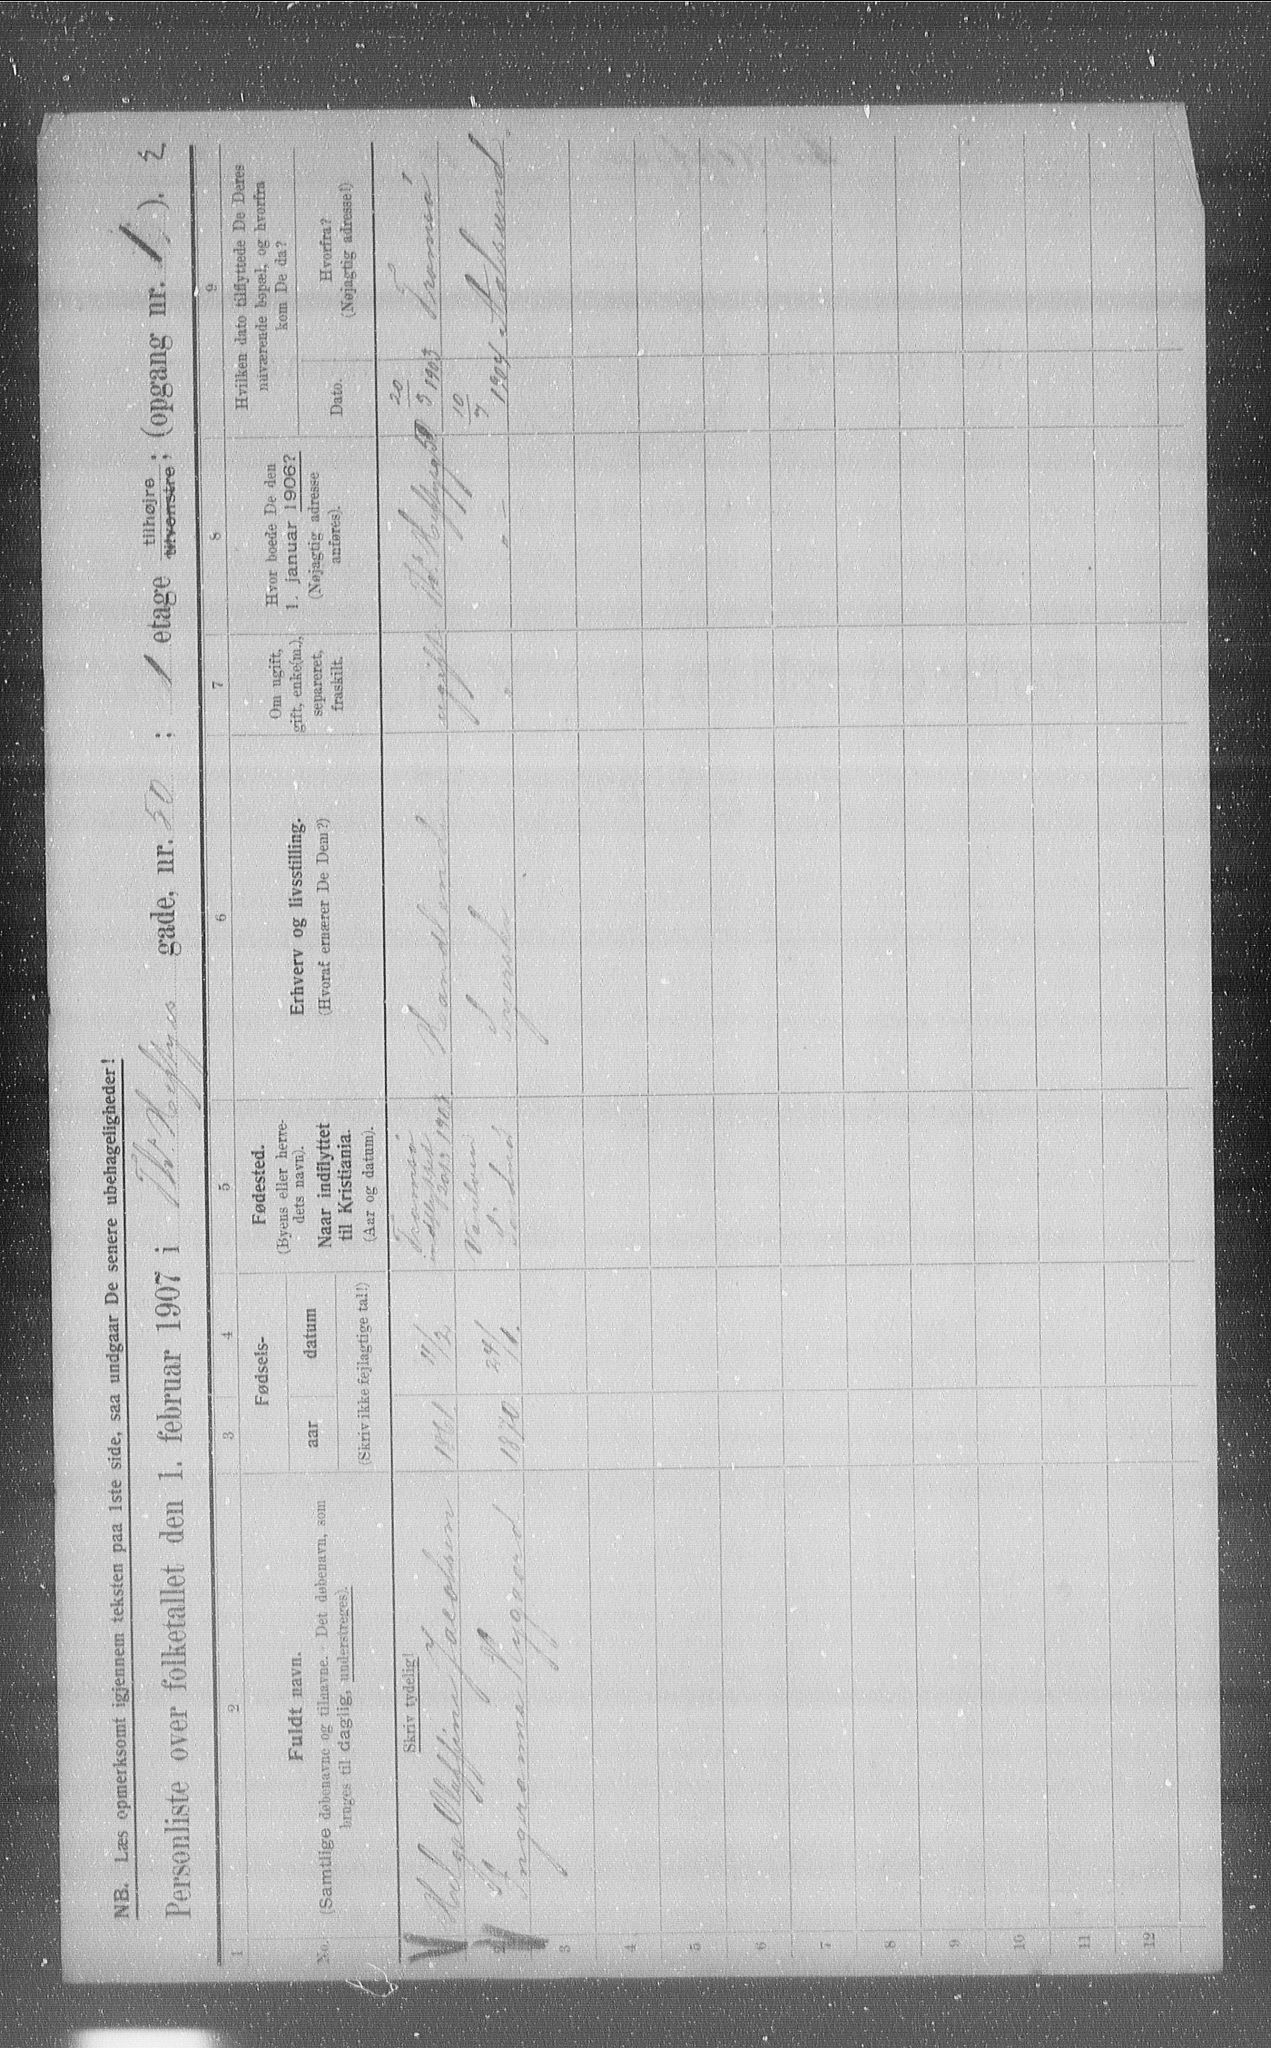 NB. Læs opmerksomt igjennem teksten paa 1ste side, saa undgaar De senere ubehageligheder!
Personliste over folketallet den 1. februar 1907 i Th. Heftyes gade, nr. 50 ; 1 etage tilhøjre ; tilvenstre ; (opgang nr. 1 ). 2
1 2 3 4 5 6 7 8 9
No.
Fuldt navn.
(Samtlige døbenavne og tilnavne. Det døbenavn, som
bruges til daglig, understreges).
Fødsels-
aar datum
(Skriv ikke fejlagtige tal!)
Fødested.
(Byens eller herre-
dets navn).
Naar indflyttet
til Kristiania.
(Aar og datum).
Erhverv og livsstilling.
(Hvoraf ernærer De Dem?)
Om ugift,
gift, enke(m.),
separeret,
fraskilt.
Hvor boede De den
1. januar 1906?
(Nøjagtig adresse
anføres).
Hvilken dato tilflyttede De Deres
nuværende bopæl, og hvorfra
kom De da?
Dato.
Hvorfra?
(Nøjagtig adresse!)
Skriv tydelig!
Helga Jacobsen 1861 11/2 Tromsø indflyttet 20/3 1903 Handlende ugift Th. Heftyesg 50 20/3 1903 Tromsø
2 Nygaard 1870 24/ " " - 10/7 1904
3
4
5
6
7
8
9
10
11
12